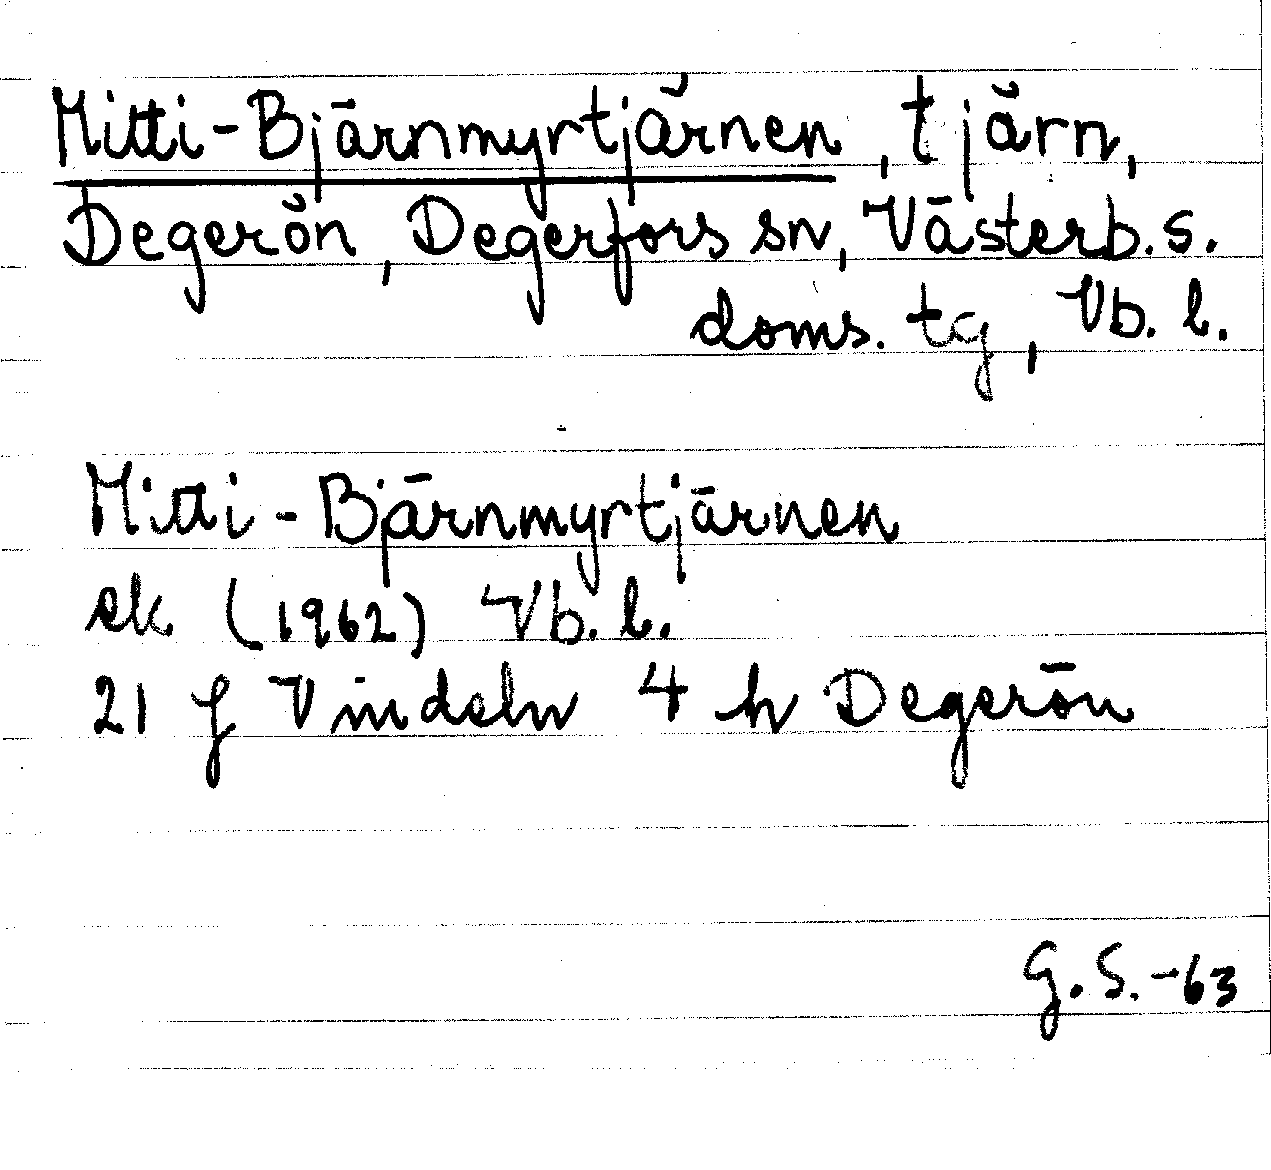 Mitti-Bjärnmyrtjärnen, tjärn,
Degerön, Degerfors sn, Västerb. s.
doms. tg, Vb. l.
Mitti-Bjärnmyrtjärnen
ek (1962) Vb. l.
21 f Vindeln 4 h Degerön
G.S.-63